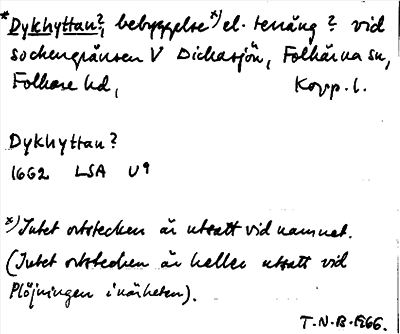 *Dykhyttan?, bebyggelse x) el. terräng? vid
sockengränsen V Dickasjön, Folkärna sn,
Folkare hd, Kopp. l.
Dykhyttan?
1662 LSA U9
x) Intet ortstecken är utsatt vid namnet.
(Intet ortstecken är heller utsatt vid
Plöjningen i närheten).
T.N.B. 1966.